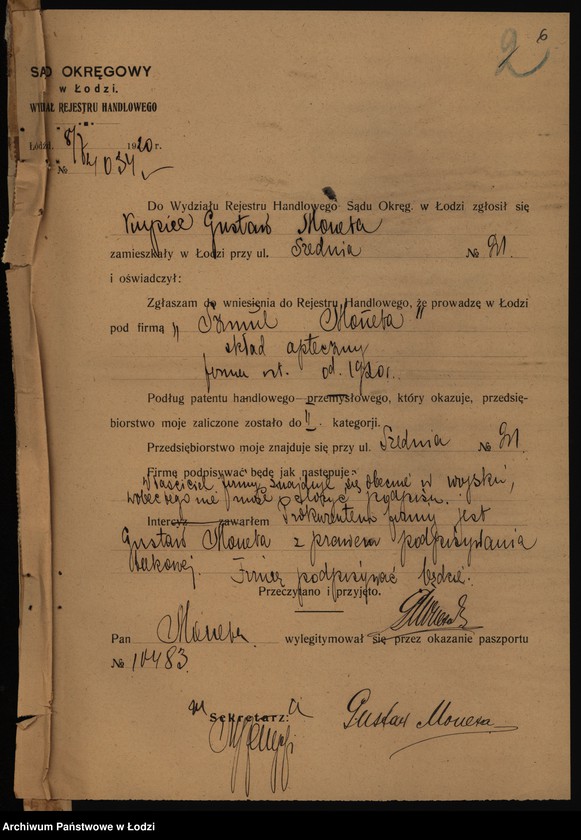 2 6
SĄD OKRĘGOWY
w Łodzi.
WYDZIAŁ REJESTRU HANDLOWEGO
Łódź, 8/ 1920 r.
№ 4034
Do Wydziału Rejestru Handlowego Sądu Okręg. w Łodzi zgłosił się
Kupiec Gustaw Moneta
zamieszkały w Łodzi przy ul. Średnia № 21.
i oświadczył:
Zgłaszam do wniesienia do Rejestru Handlowego, że prowadzę w Łodzi
pod firmą „Szmul Moneta"
skład apteczny
firma ist. od 1920 r.
Podług patentu handlowego—przemysłowego, który okazuje, przedsię-
biorstwo moje zaliczone zostało do II kategorji.
Przedsiębiorstwo moje znajduje się przy ul. Średnia № 21.
Firmę podpisywać będę jak następuje:
Właściciel firmy znajduje się obecnie w wojsku,
wobec czego nie może złożyć podpisu.
Intercyz zawarłem Prokurentem firmy jest
Gustaw Moneta z prawem podpisywania
takowej. Firmę podpisywać będzie:
Przeczytano i przyjęto.
GMoneta
Pan Moneta wylegitymował się przez okazanie paszportu
№ 10483
Sekretarz:
Gustaw Moneta
Archiwum Państwowe w Łodzi